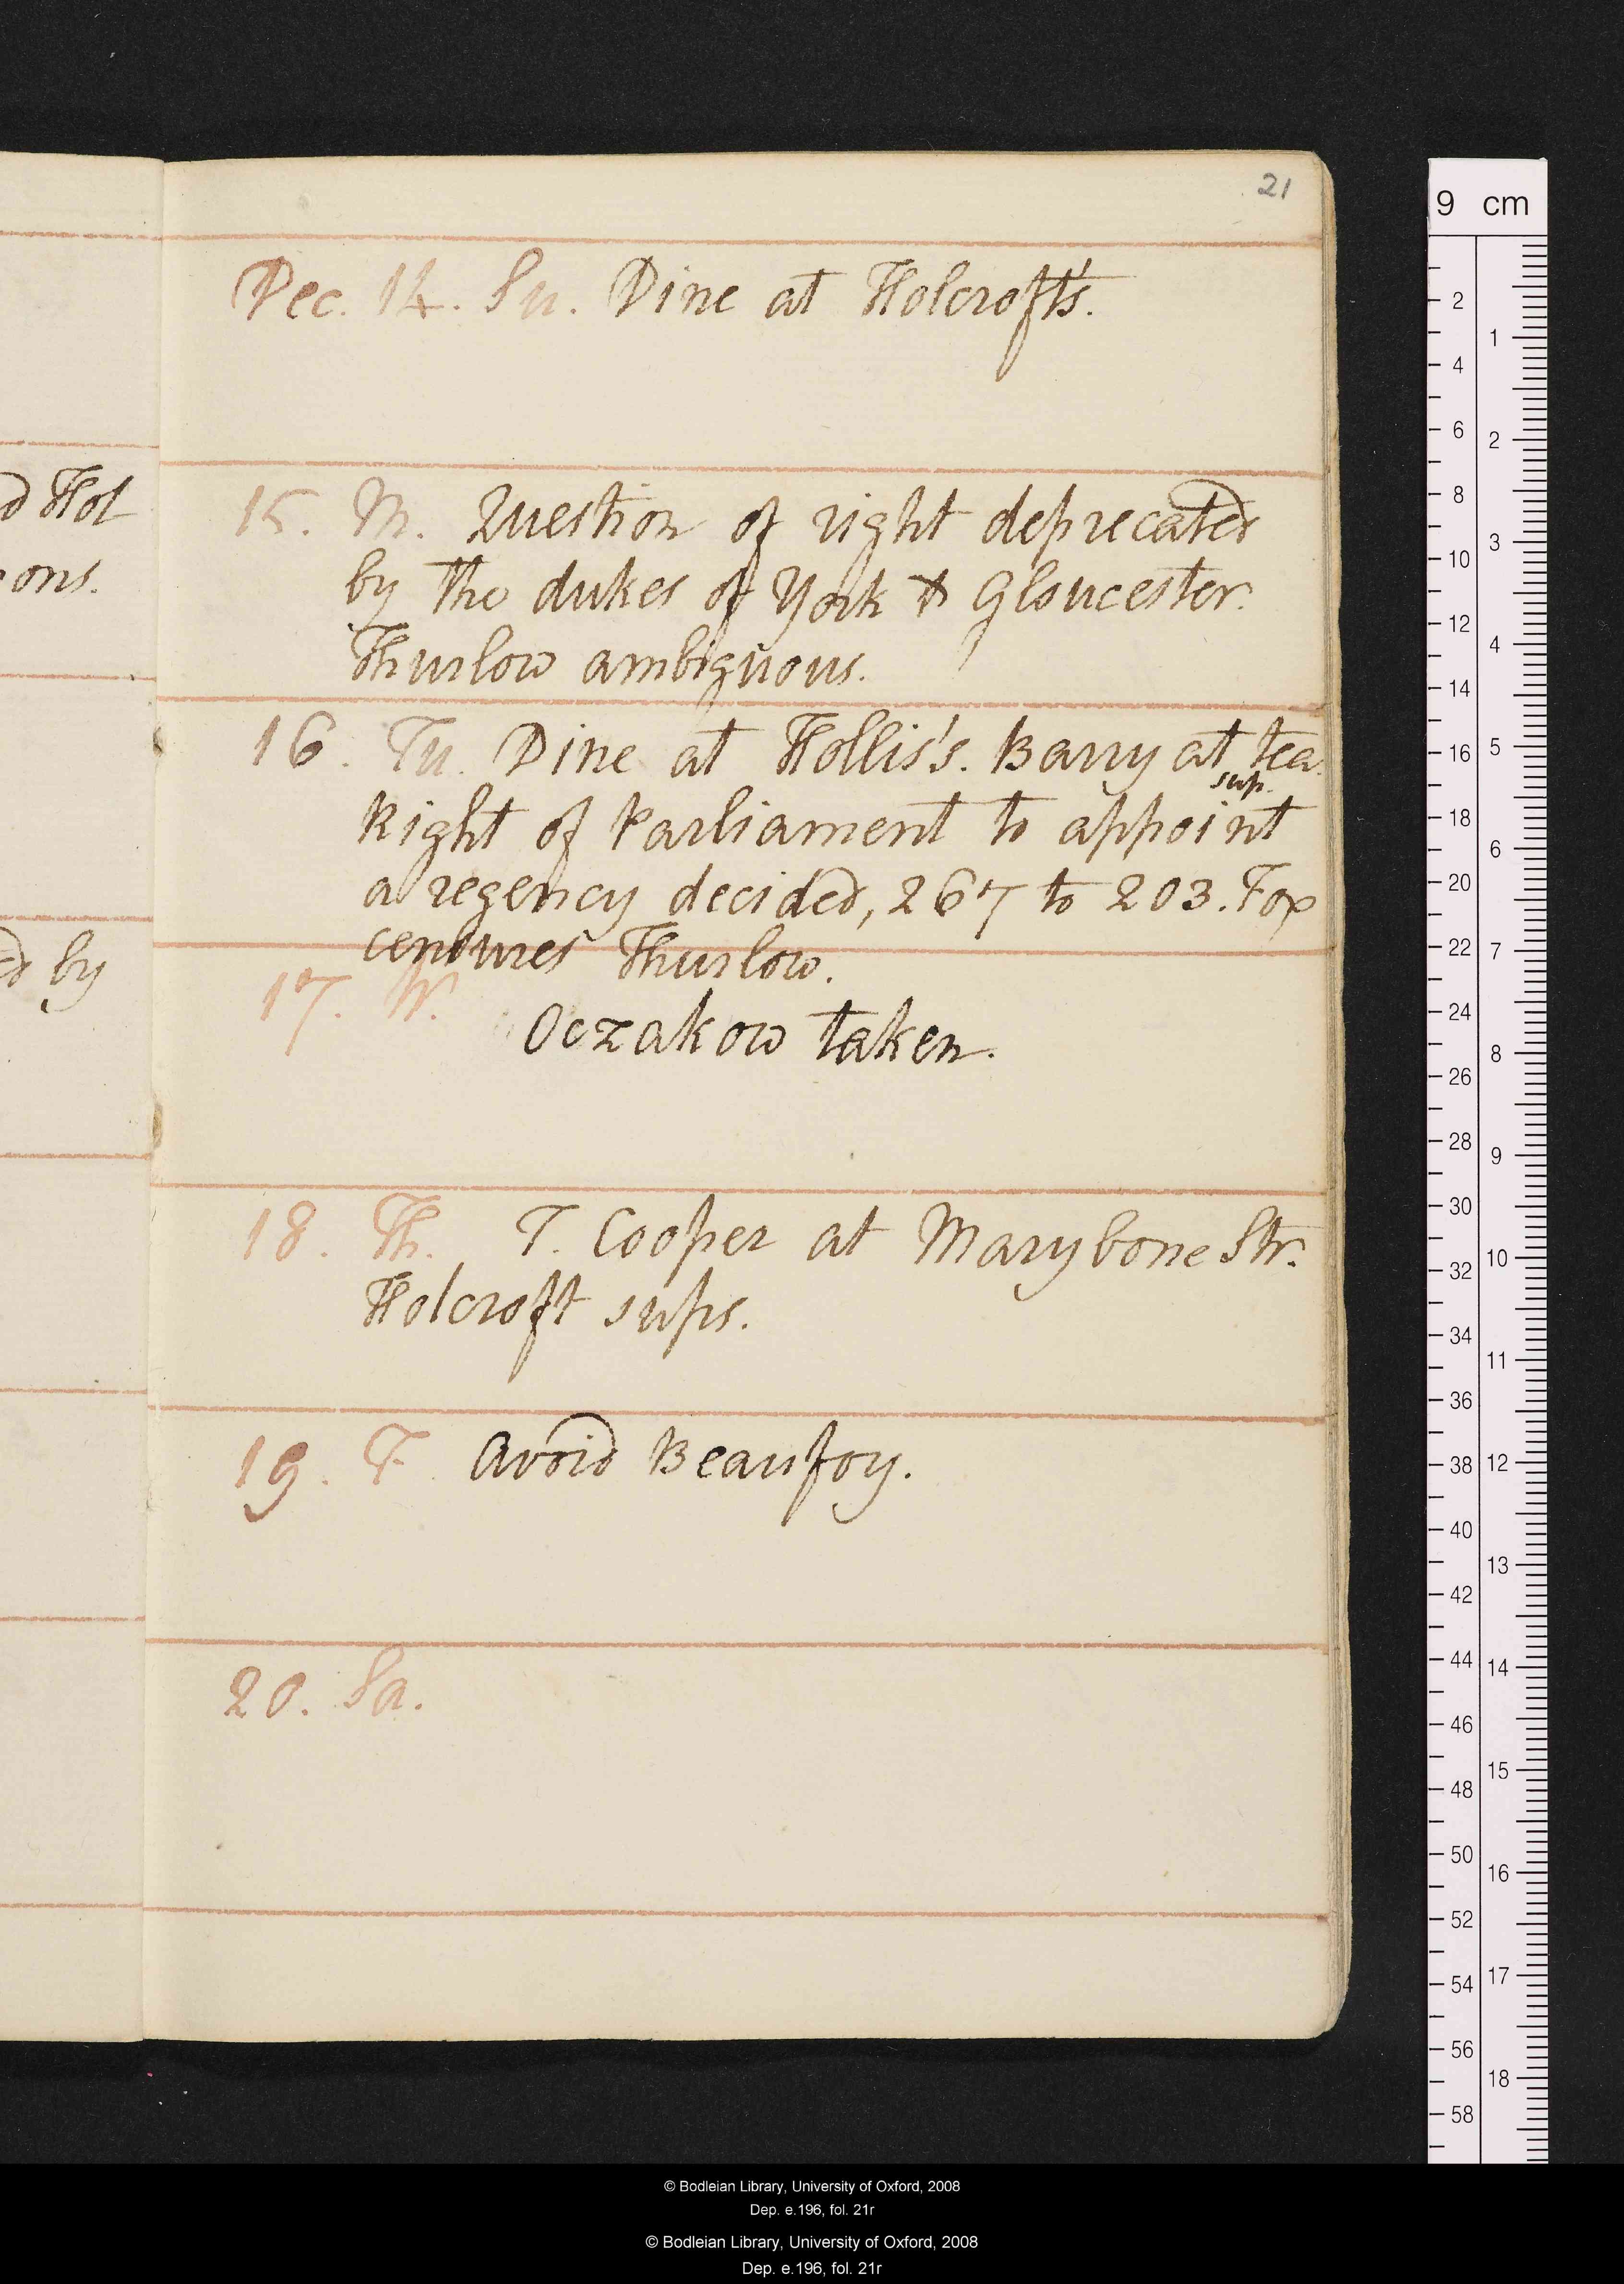 21
Dec. 14. Su. Dine at Holcroft's.
15. M. Question of right deprecated
by the dukes of York & Gloucester.
Thurlow ambiguous.
16. Tu. Dine at Hollis's. Barry at tea.
sup.
Right of Parliament to appoint
a regency decided, 267 to 203. Fox
censures Thurlow.
17. W.
Oczakow taken.
18. Th. T. Cooper at Marybone Str.
Holcroft sups.
19. F. Avoid Beaufoy.
20. Sa.
d Hol
ons.
d by
9 cm
2
4
6
8
10
12
14
16
18
20
22
24
26
28
30
32
34
36
38
40
42
44
46
48
50
52
54
56
58
1
2
3
4
5
6
7
8
9
10
11
12
13
14
15
16
17
18
© Bodleian Library, University of Oxford, 2008
Dep. e.196, fol. 21r
© Bodleian Library, University of Oxford, 2008
Dep. e.196, fol. 21r